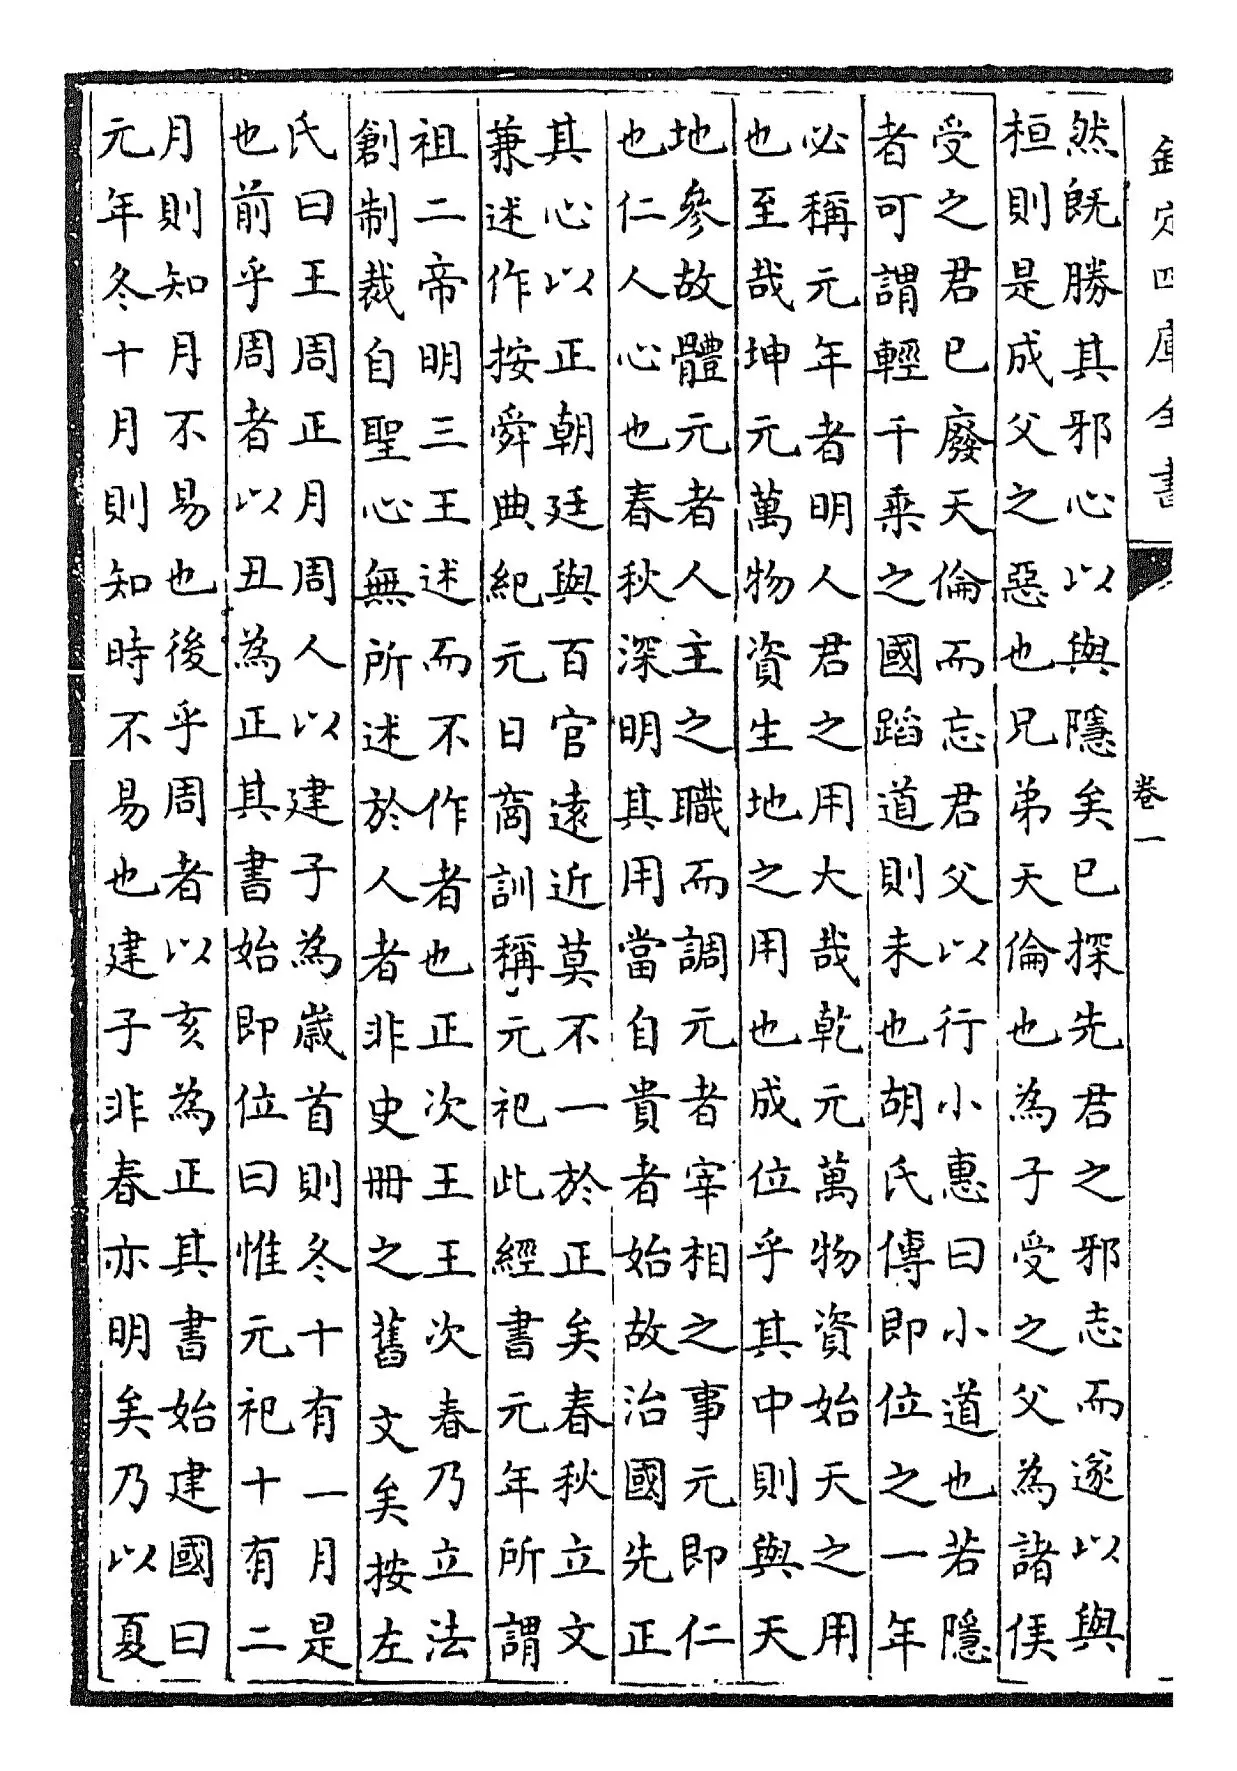 欽定四庫全書
卷一
然既勝其邪心以與隱矣已探先君之邪志而遂以與
桓則是成父之惡也兄弟天倫也為子受之父為諸侯
受之君已廢天倫而忘君父以行小惠曰小道也若隱
者可謂輕千乘之國蹈道則未也胡氏傳即位之一年
必稱元年者明人君之用大哉乾元萬物資始天之用
也至哉坤元萬物資生地之用也成位乎其中則與天
地參故體元者人主之職而調元者宰相之事元即仁
也仁人心也春秋深明其用當自貴者始故治國先正
其心以正朝廷與百官遠近莫不一於正矣春秋立文
兼述作按舜典紀元日商訓稱元祀此經書元年所謂
祖二帝明三王述而不作者也正次王王次春乃立法
創制裁自聖心無所述於人者非史冊之舊文矣按左
氏曰王周正月周人以建子為歲首則冬十有一月是
也前乎周者以丑為正其書始即位曰惟元祀十有二
月則知月不易也後乎周者以亥為正其書始建國曰
元年冬十月則知時不易也建子非春亦明矣乃以夏